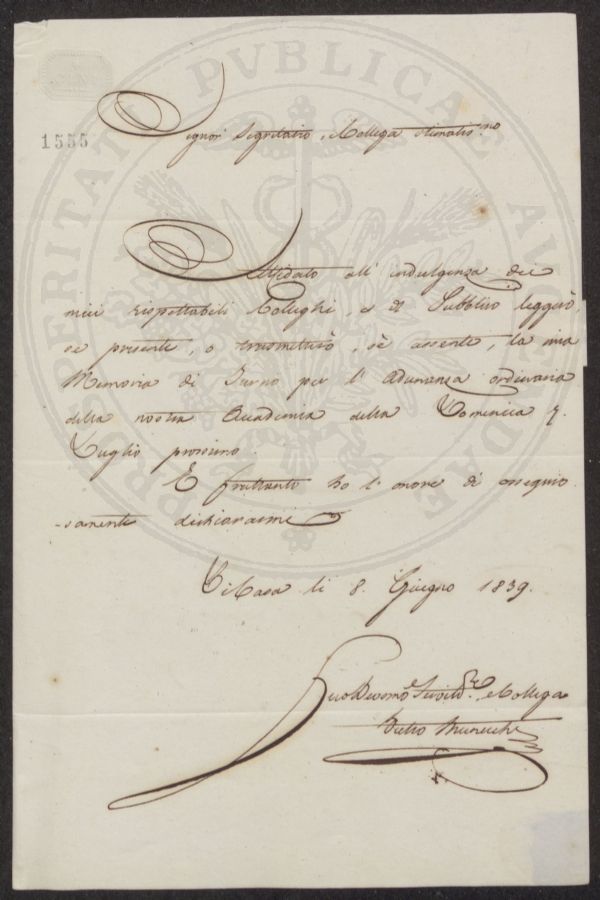 PROSPERITATI PVBLICAE AVGENDAE
1555
Signor Segretario, e Collega Stimatis.mo
Affidato all' indulgenza dei
miei rispettabili Colleghi, e di Pubblico leggerò,
se presente, o trasmetterò, se assente, la mia
Memoria di Turno per l' Adunanza ordinaria
della nostra Accademia della Domenica 7.
Luglio prossimo.
E frattanto ho l' onore di ossequio
-samente dichiararmi
Di Casa li 8. Giugno 1839.
Suo Devomo e Servid.re e Collega
Pietro